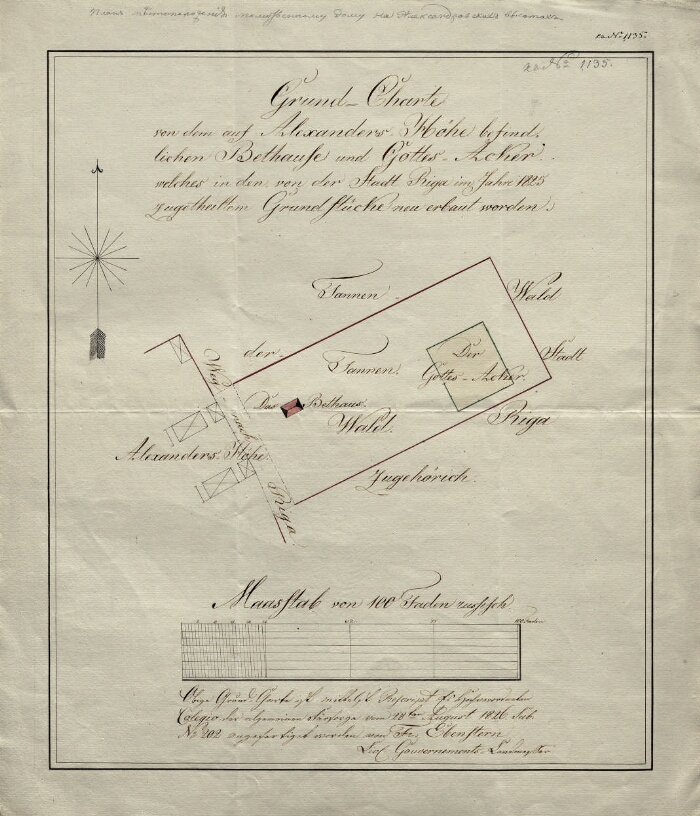 планъ принадлежащій молитвенному дому на Александровскихъ высотахъ
къ № 1135.
къ № 1135.
Grund-Charte
von dem auf Alexanders-Höhe befind.
lichen Bethause und Gottes-Acker
welches in den von der Stadt Riga im Jahre 1825
zugetheiltem Grundstücke neu erbaut worden.
Tannen Wald
der Stadt
Tannen Wald.
Der
Gottes-Acker.
Das Bethaus.
Riga
Zugehörich.
Weg nach Riga
Alexanders Höhe
Maasstab von 100 Faden
100 Faden
Obige Grund Charte ist mittelst Rescript
Colegio der allgemeinen Fürsorge vom 18ten August 1826. Sub.
№ 202 angefertiget worden von Fr. Ebenstern
Livl. Gouvernements-Landmesser